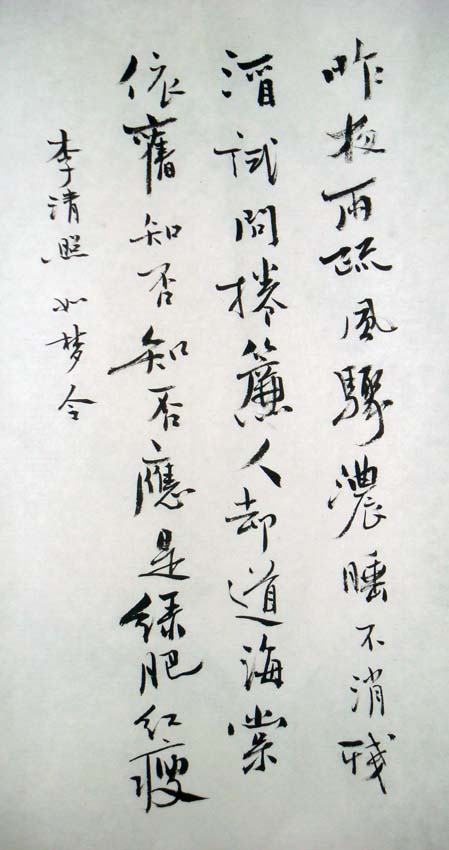 昨夜雨疏风骤濃睡不消残
酒試問捲簾人却道海棠
依舊知否知否應是绿肥红瘦
李清照如梦令